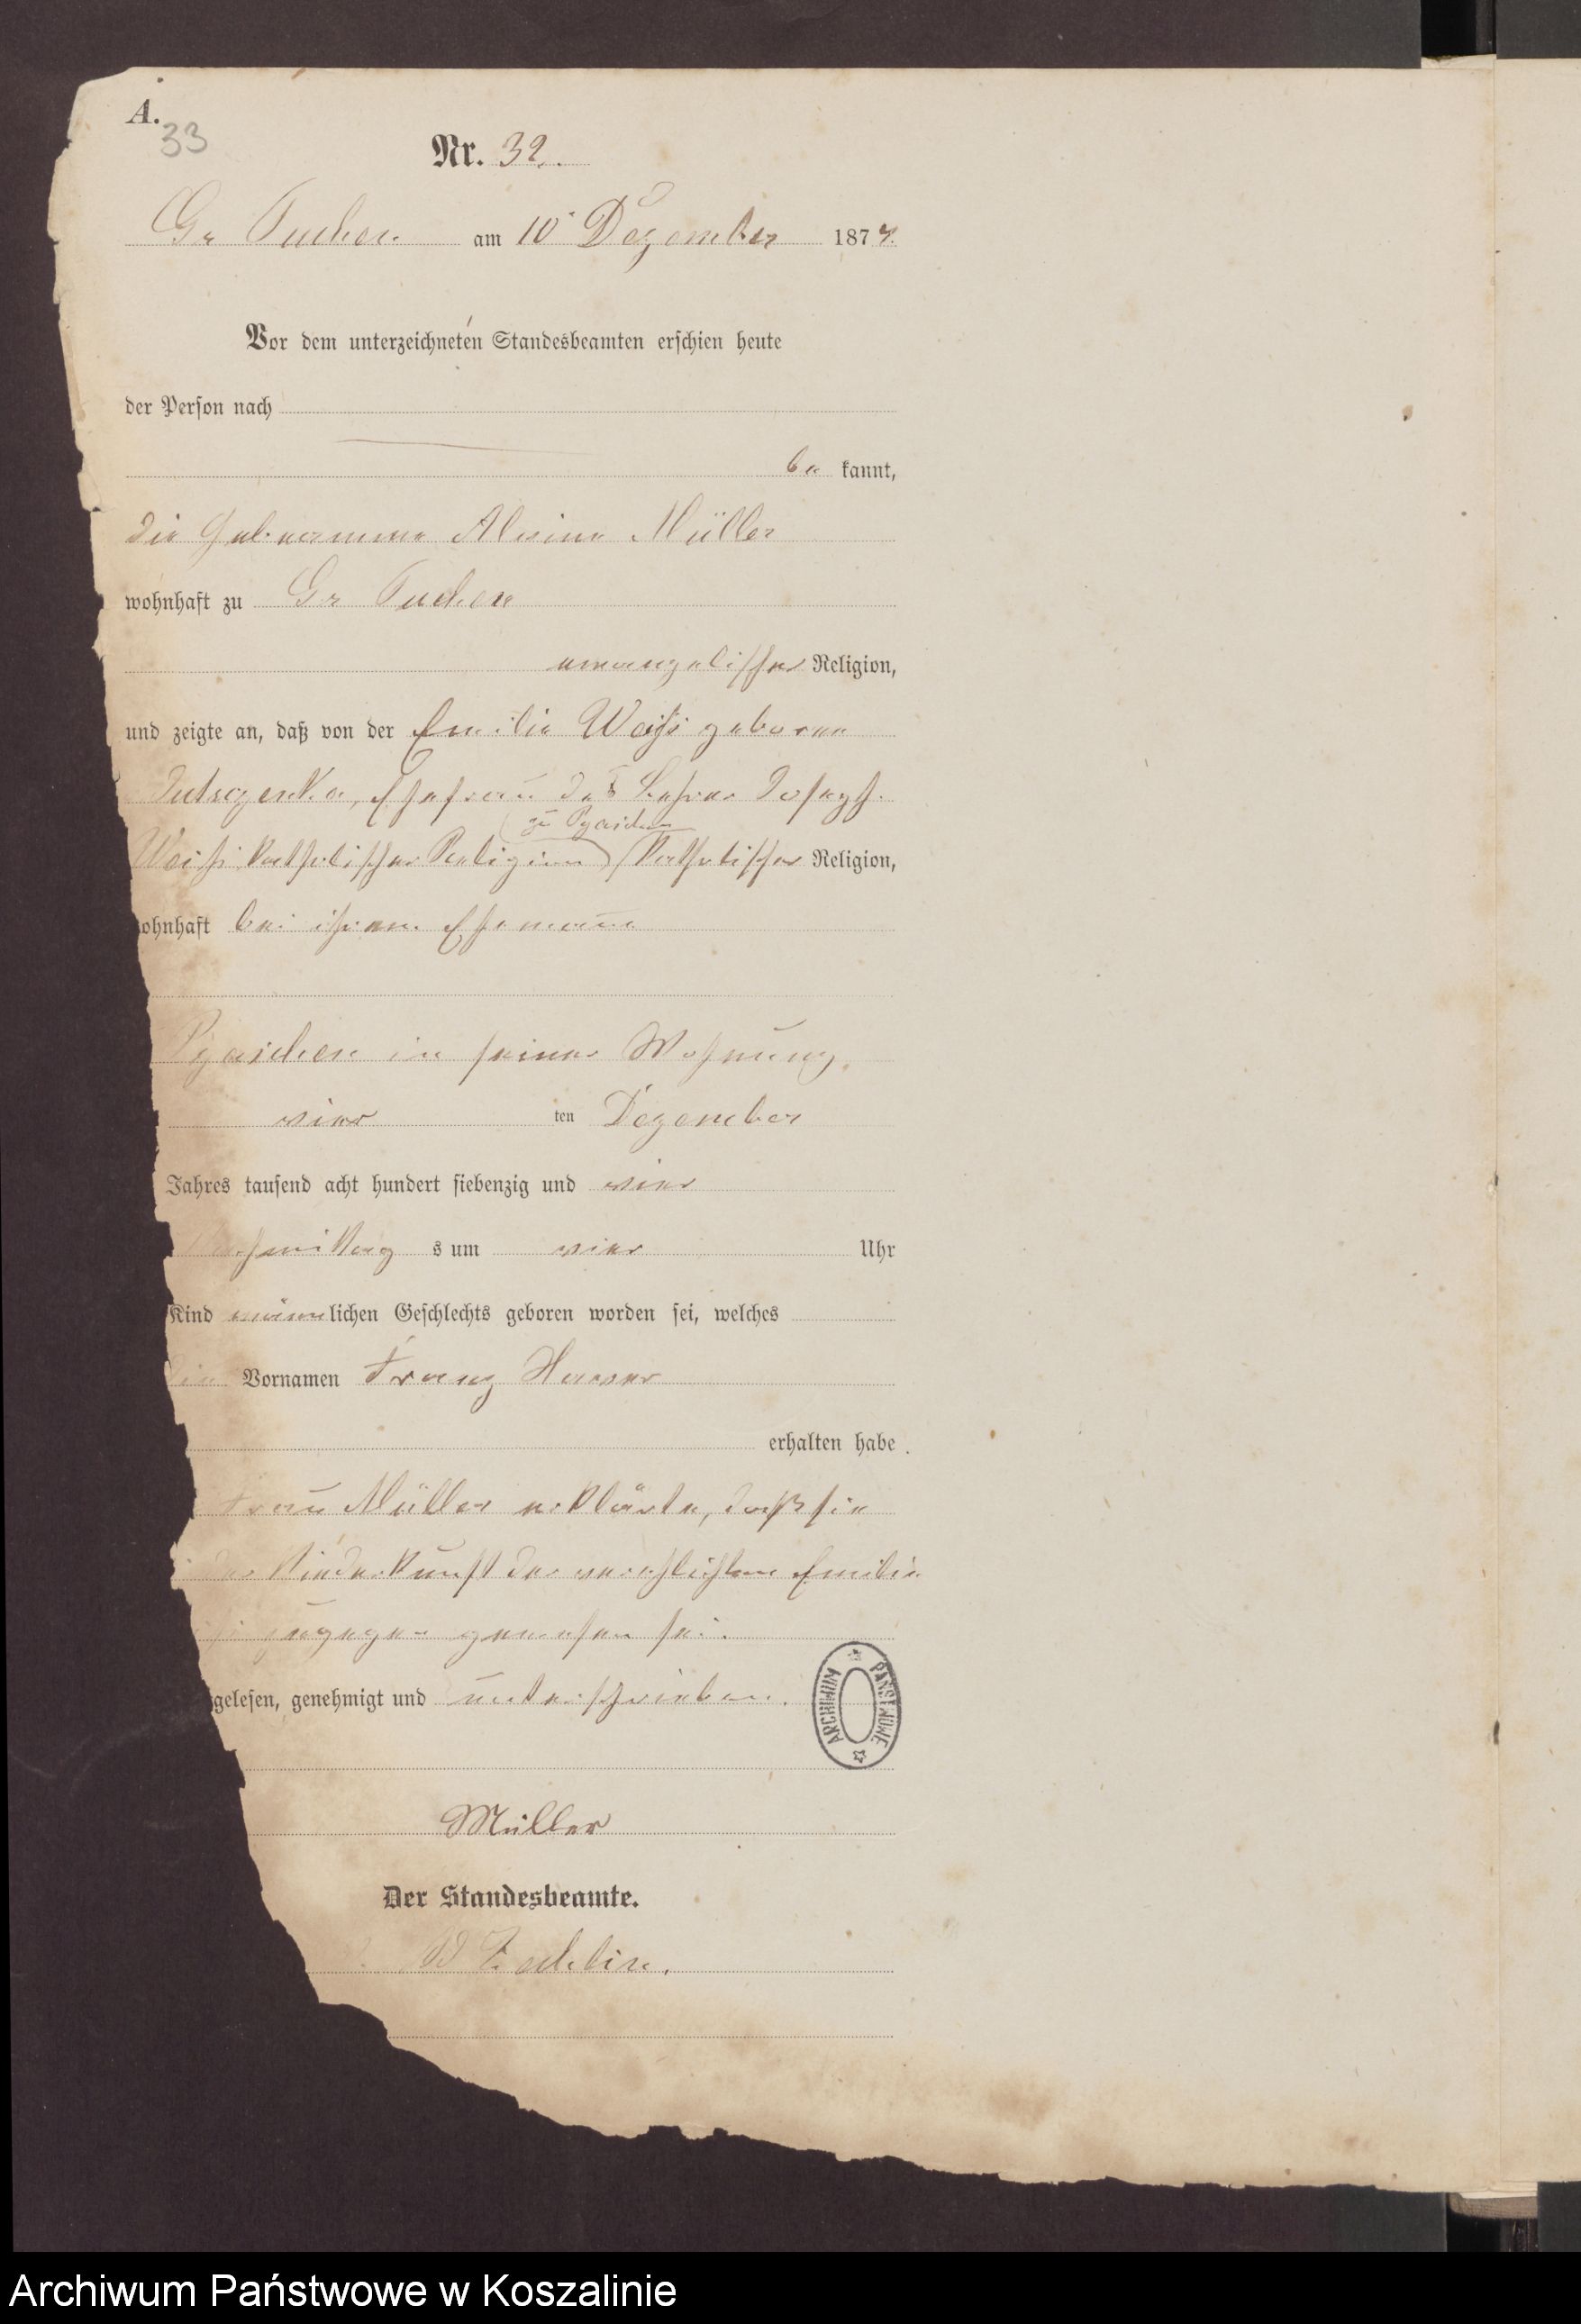 A.
33
Nr. 32.
Gr Tuchen am 10 Dezember 1874.
Vor dem unterzeichneten Standesbeamten erschien heute
der Person nach
be kannt,
die Hebeamme Müller
wohnhaft zu Gr Tuchen
evangelischer Religion,
und zeigte an, daß von der Emilie Weiß geborene
Ehefrau des Lehrer Joseph
zu Pyaschen
Weiß katholischer Religion katholischer Religion,
ohnhaft bei ihrem Ehemann
Pyaschen in seiner Wohnung,
vier ten Dezember
Jahres tausend acht hundert siebenzig und vier
mittag s um vier Uhr
Kind männlichen Geschlechts geboren worden sei, welches
die Vornamen Franz
erhalten habe.
Frau Müller erklärte, daß sie
der Niederkunft der verehlichten Emilie
zugegen gewesen sei.
gelesen, genehmigt und unterschrieben.
ARCHIWUM PAŃSTWOWE
Müller
Der Standesbeamte.
Archiwum Państwowe w Koszalinie